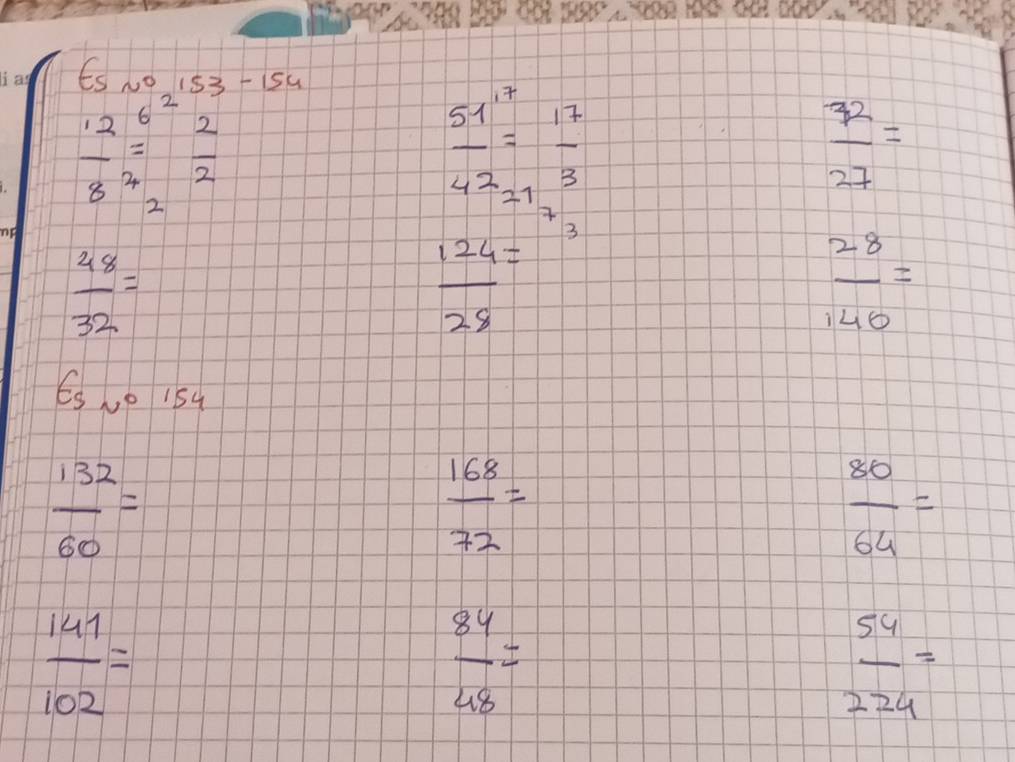 li as
Es N° 153-154
12/8 = 6 2 4 2 2/2
51/42 = 17 21 7 3 17/3
72/27 =
48/32 =
124/28 =
28/140 =
Es N° 154
132/60 =
168/72 =
80/64 =
141/102 =
84/48 =
54/224 =